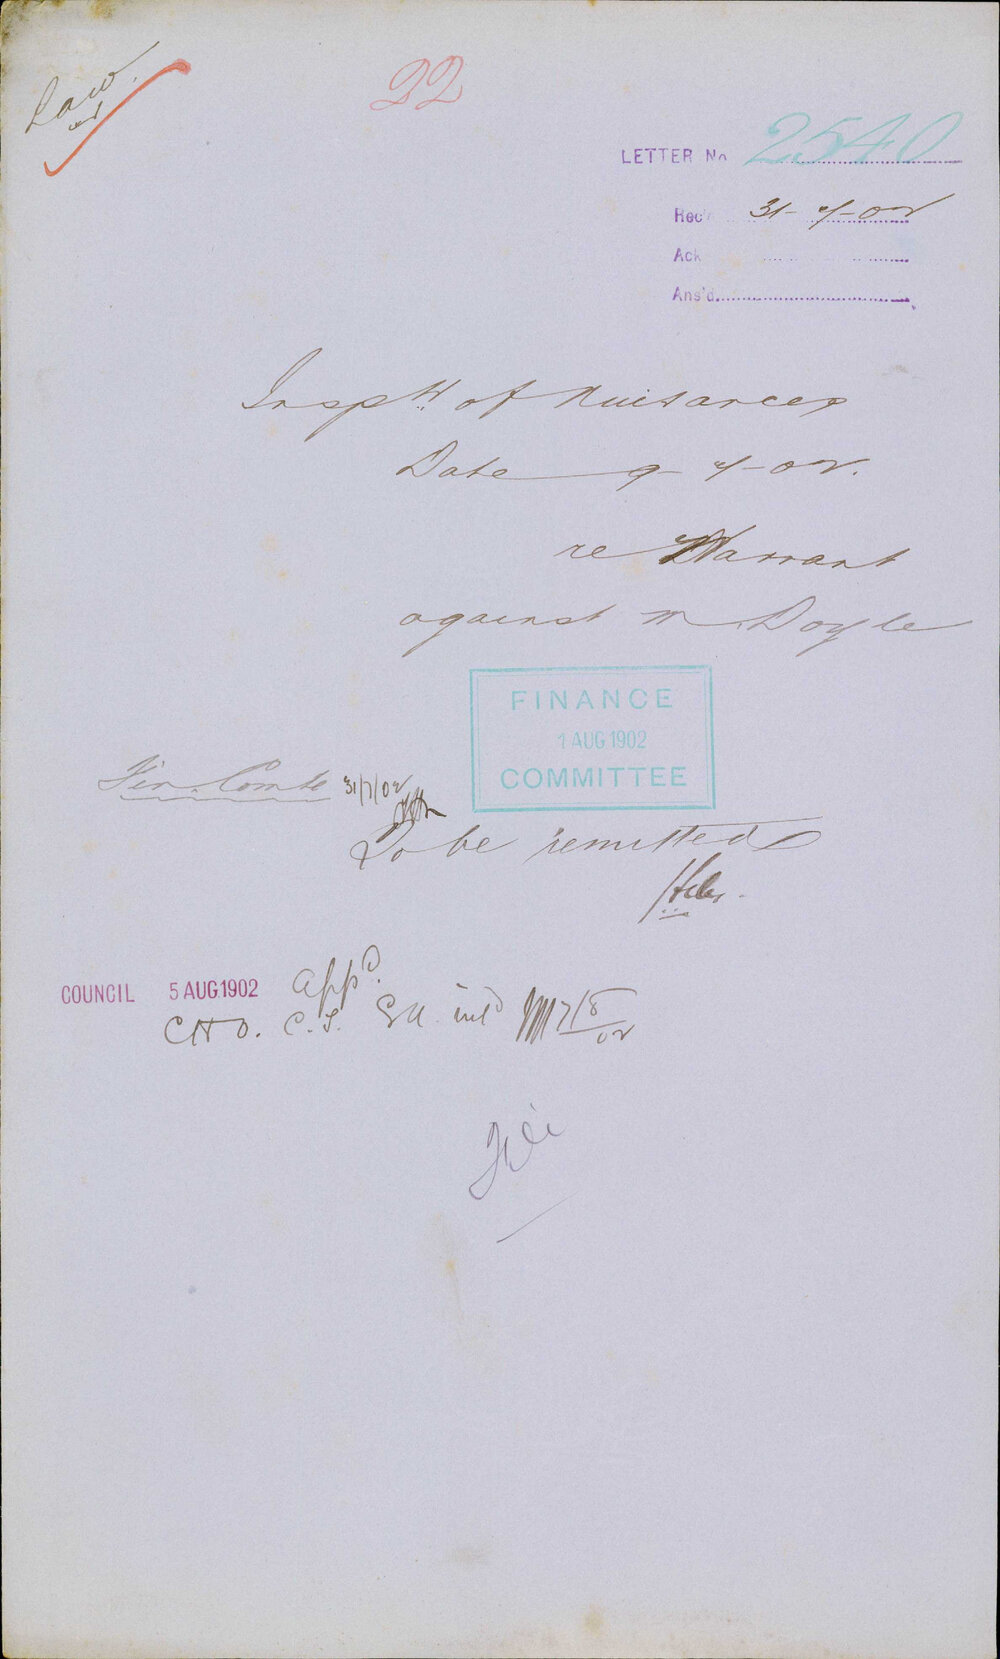 Law.
22
LETTER No 2540
Rec'd 31-7-02
Ack
Ans'd.
Insptr of Nuisances
Date 9-7-02.
re Warrant
against M Doyle
FINANCE
1 AUG 1902
COMMITTEE
Fin. Comte 31/7/02
To be remitted
COUNCIL 5 AUG.1902 appd.
CHO. C.S. intd 7/8/02
File